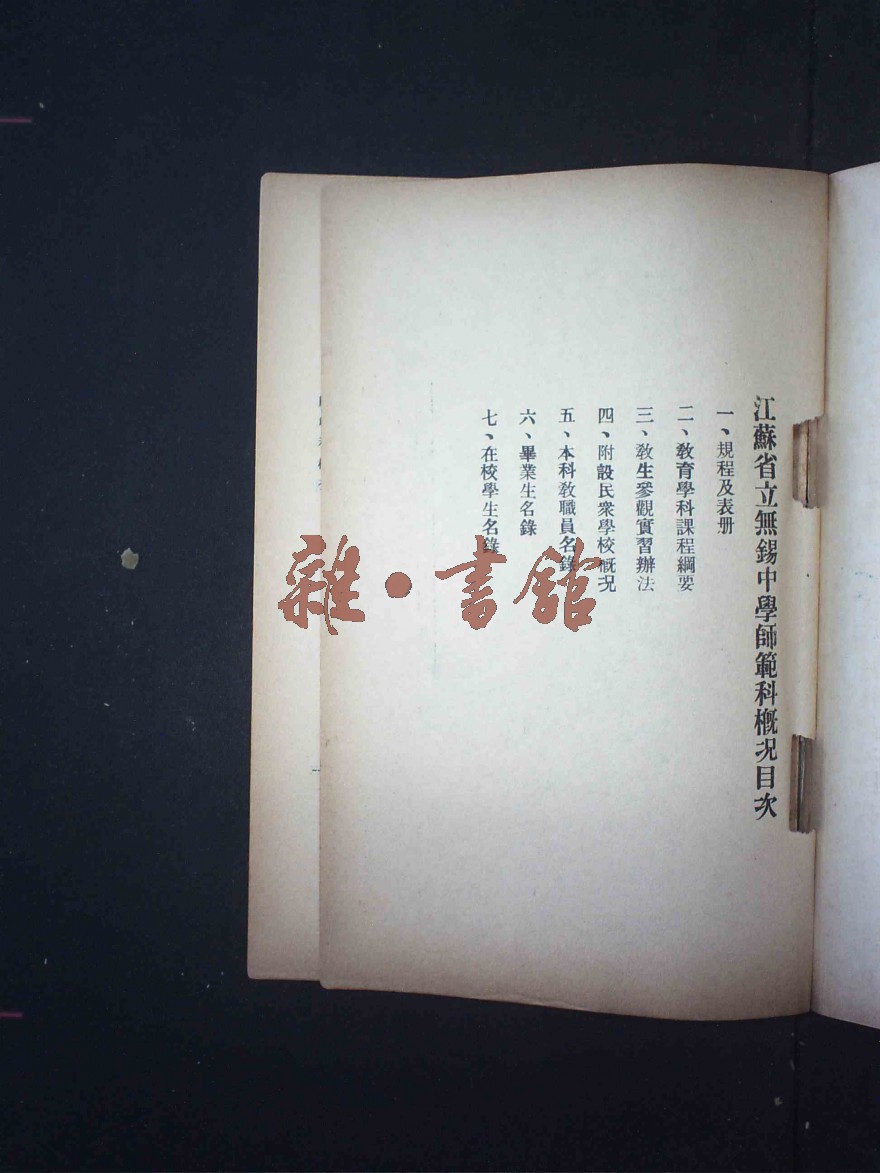 江蘇省立無錫中學師範科槪况目次
一、規程及表册
二、敎育學科課程綱要
三、敎生參觀實習辦法
四、附設民衆學校槪况
五、本科敎職員名錄
六、畢業生名錄
七、在校學生名錄
雜·書館